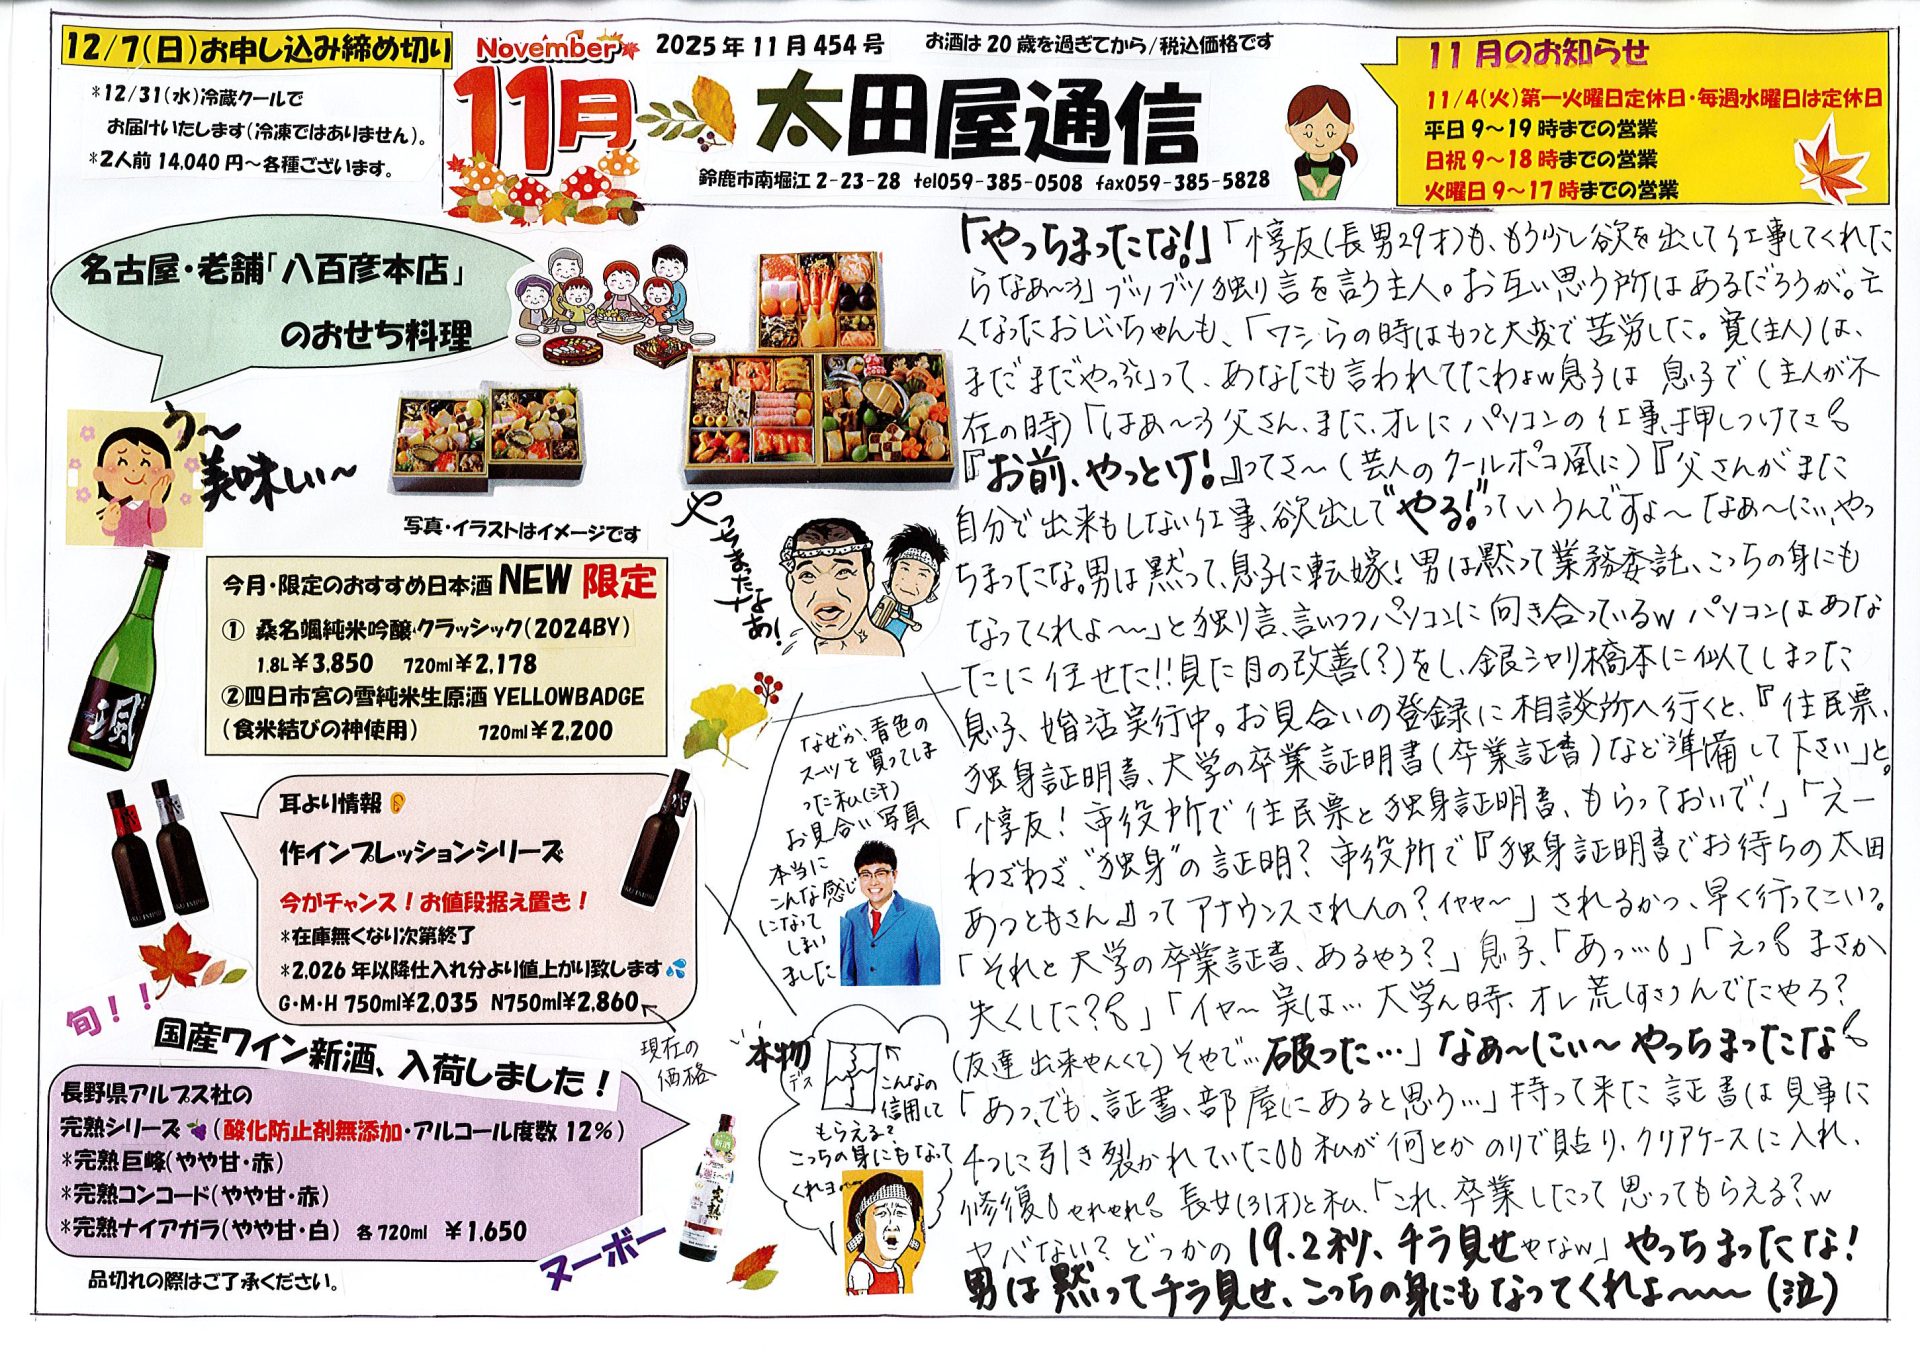 12/7(日)お申し込み締め切り
*12/31(水)冷蔵クールで
お届けいたします(冷凍ではありません)。
*2人前14,040円～各種ございます。
November
11月
2025年11月454号
お酒は20歳を過ぎてから/税込価格です
太田屋通信
鈴鹿市南堀江2-23-28 tel059-385-0508 fax059-385-5828
11月のお知らせ
11/4(火)第一火曜日定休日・毎週水曜日は定休日
平日9～19時までの営業
日祝9～18時までの営業
火曜日9～17時までの営業
名古屋・老舗「八百彦本店」
のおせち料理
う～
美味しい～
写真・イラストはイメージです
今月・限定のおすすめ日本酒NEW 限定
① 桑名颯純米吟醸・クラッシック(2024BY)
1.8L￥3,850 720ml￥2,178
②四日市宮の雪純米生原酒YELLOWBADGE
(食米結びの神使用) 720ml￥2,200
颯
耳より情報
作インプレッションシリーズ
今がチャンス！お値段据え置き！
*在庫無くなり次第終了
*2,026年以降仕入れ分より値上がり致します
G・M・H 750ml¥2,035 N750ml¥2,860
現在の
価格
旬！！
国産ワイン新酒、入荷しました！
長野県アルプス社の
完熟シリーズ(酸化防止剤無添加・アルコール度数12%)
*完熟巨峰(やや甘・赤)
*完熟コンコード(やや甘・赤)
*完熟ナイアガラ(やや甘・白) 各720ml ￥1,650
ヌーボー
完熟
品切れの際はご了承ください。
やっちまったなぁ！
「なぜか、青色の
スーツを買ってしま
った私(汗)
お見合い写真
本当に
こんな感じ
になって
しまい
ました
本物
デス
こんなの
信用して
もらえる？
こっちの身にもなって
くれヨ～
「やっちまったな！」「惇友(長男29才)も、もう少し欲を出して仕事してくれた
らなあ～」ブツブツ独り言を言う主人。お互い思う所はあるだろうが。亡
くなったおじいちゃんも、「ワシらの時はもっと大変で苦労した。寛(主人)は、
まだまだやっ」って、あなたも言われてたわよw息子は息子で(主人が不
在の時)「はあ～父さん、また、オレにパソコンの仕事、押しつけてさ
『お前、やっとけ！』ってさ～(芸人のクールポコ風に)『父さんがまた
自分で出来もしない仕事、欲出して"やる!"っていうんですよ～なぁ～にぃ、やっ
ちまったな。男は黙って、息子に転嫁！男は黙って業務委託、こっちの身にも
なってくれよ～」と独り言、言いつつパソコンに向き合っているwパソコンはあな
たに任せた!!見た目の改善(?)をし、銀シャリ橋本に似てしまった
息子、婚活実行中。お見合いの登録に相談所へ行くと、『住民票、
独身証明書、大学の卒業証明書(卒業証書)など準備して下さい」と。
「惇友！市役所で住民票と独身証明書、もらっておいで！」「えー
わざわざ、"独身"の証明？市役所で『独身証明書でお待ちの太田
あつともさん』ってアナウンスされんの？イヤャ～」されるかっ、早く行ってこいっ。
「それと大学の卒業証書、あるやろ？」息子、「あっ…」「えっ まさか
失くした？」「イヤ～実は…大学ん時、オレ荒(すさ)んでたやろ？
(友達出来やんくて)そやで…破った…」なぁ～にぃ～やっちまったな
「あっ、でも、証書、部屋にあると思う…」持って来た証書は見事に
4つに引き裂かれていた 私が何とかのりで貼り、クリアケースに入れ、
修復 やれやれ 長女(31才)と私、「これ、卒業したって思ってもらえる？w
ヤバない？どっかの19.2秒、チラ見せやなw」やっちまったな！
男は黙ってチラ見せ、こっちの身にもなってくれよ～～～(泣)